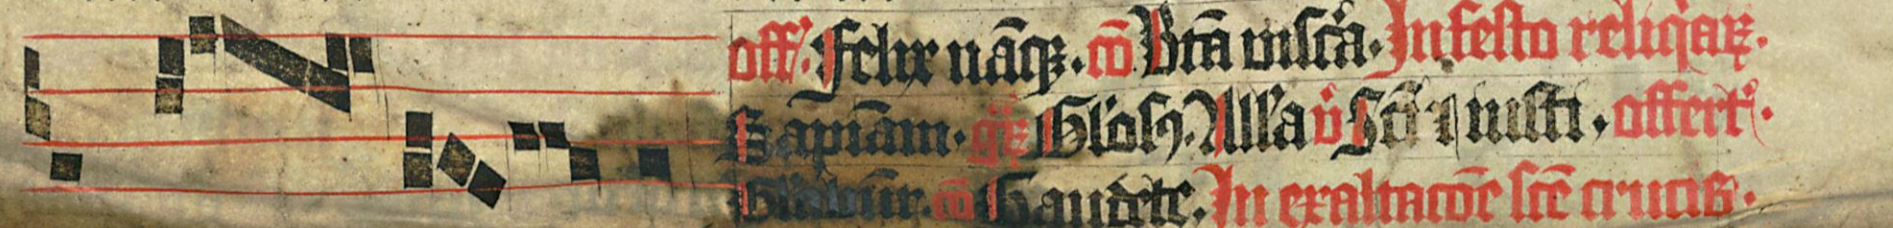 off. Felix nāqꝫ. cō Btā visćā. In festo reliq̄aꝝ.
Sapīam. gͬꝫ Glōsꝰ. Alla v̊ Scī ⁊ iusti. offert.
Glābūr. cō Gaudete. In exaltacōe scē crucis.